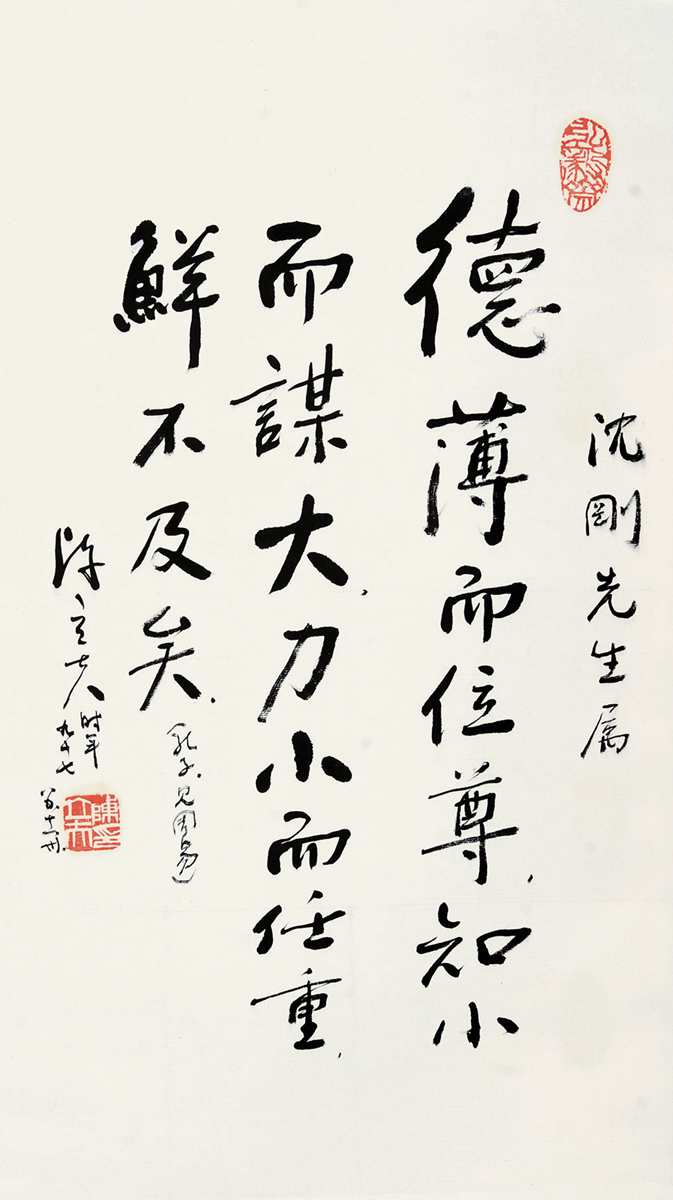 沈剛先生属
德薄而位尊，知小
而謀大，力小而任重，
鮮不及矣。
（孔子，見周易）
陳立夫時年
九十七
陳立夫印